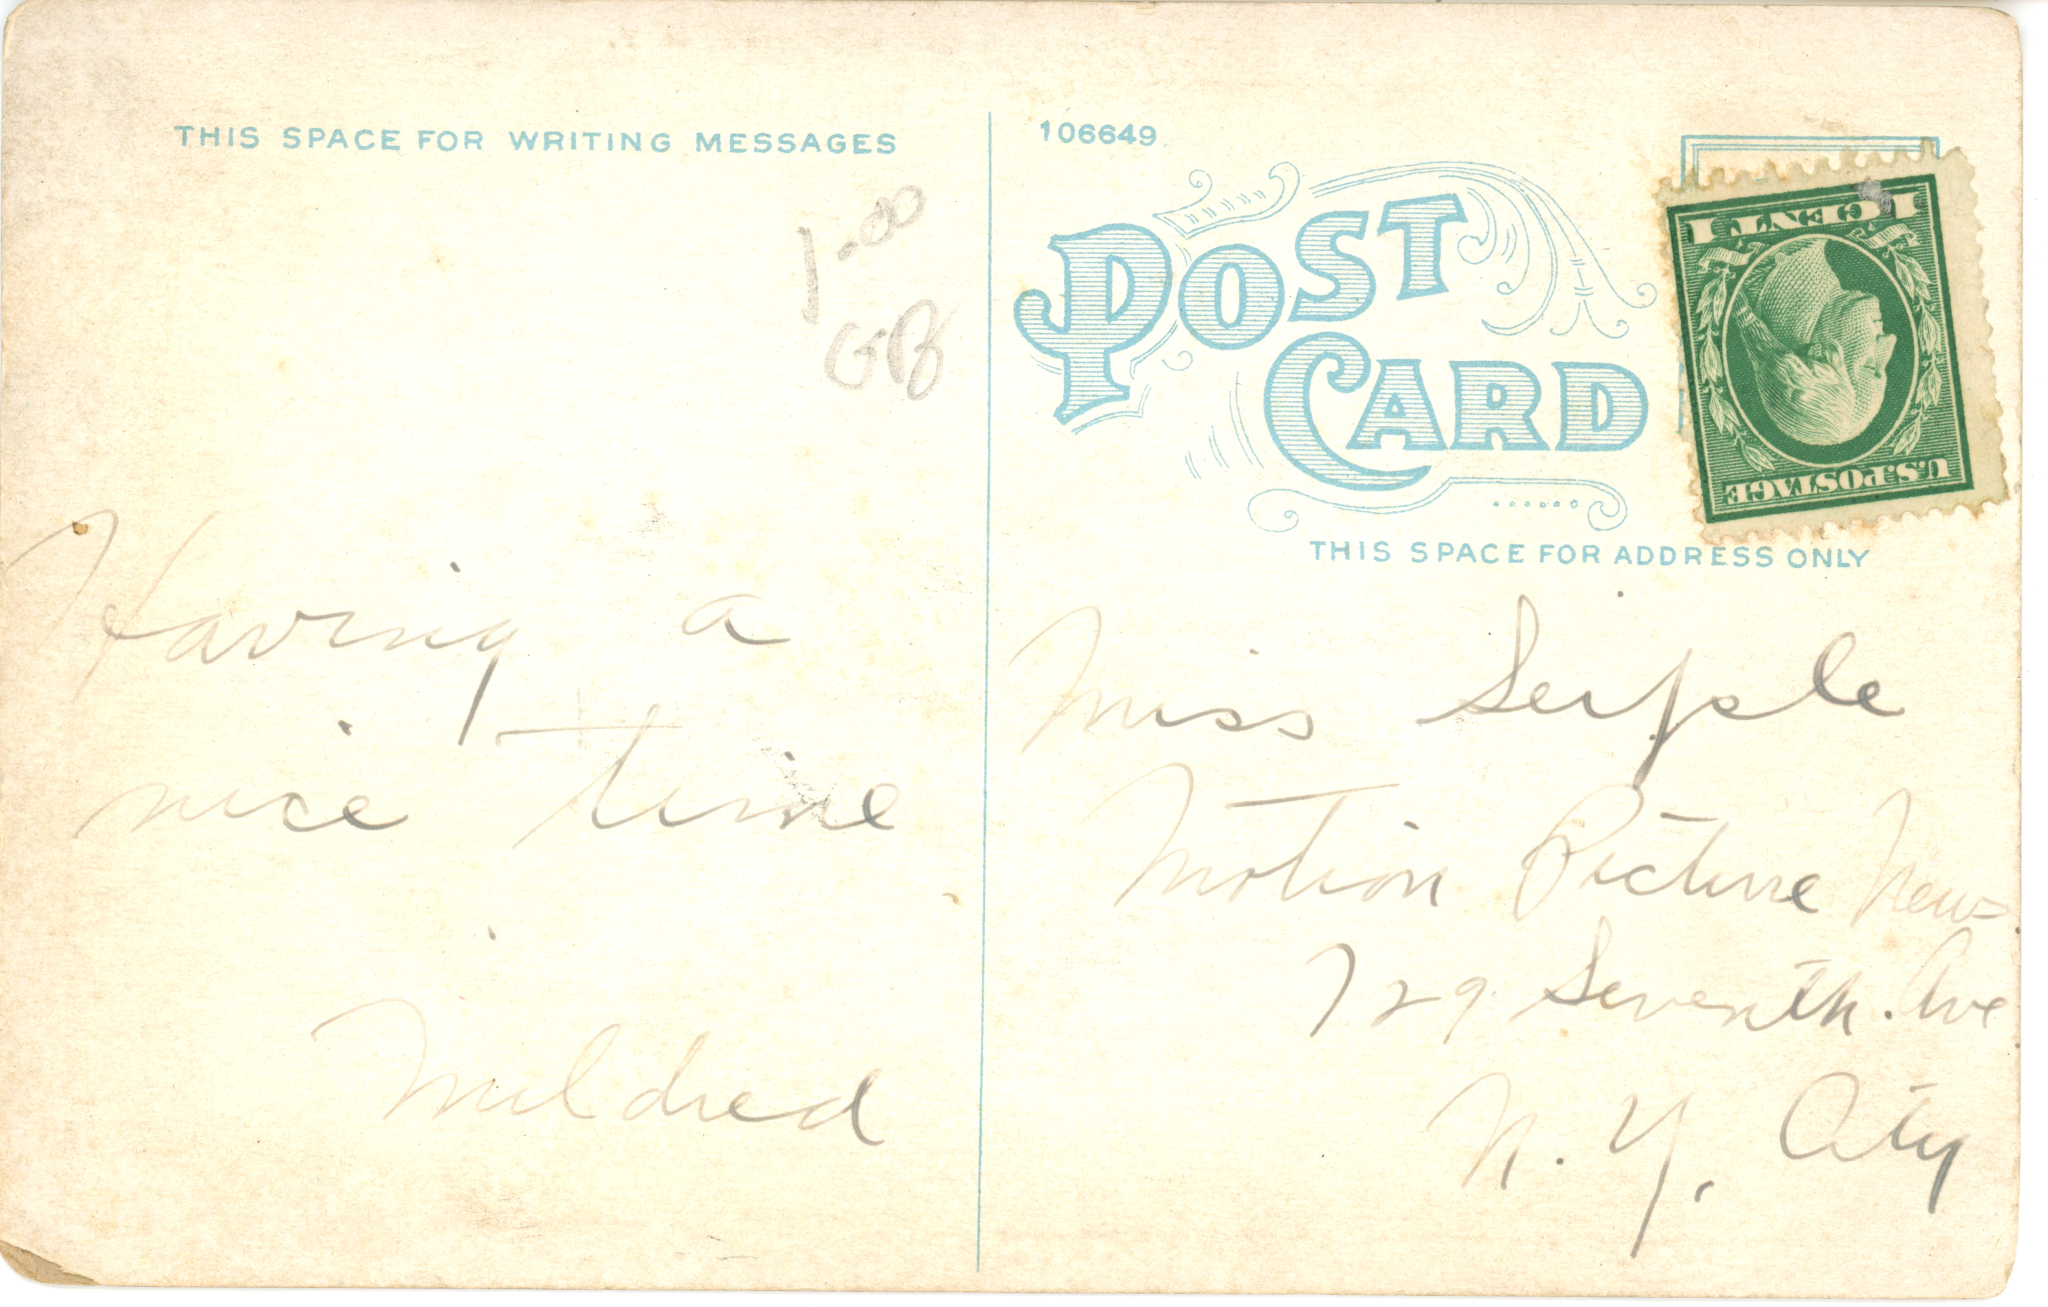 THIS SPACE FOR WRITING MESSAGES
1-00
GB
Having a
nice time
Mildred
106649
POST
CARD
1 CENT 1
U.S. POSTAGE
THIS SPACE FOR ADDRESS ONLY
Miss Seiple
Motion Picture News
729 Seventh. Ave
N. Y. City